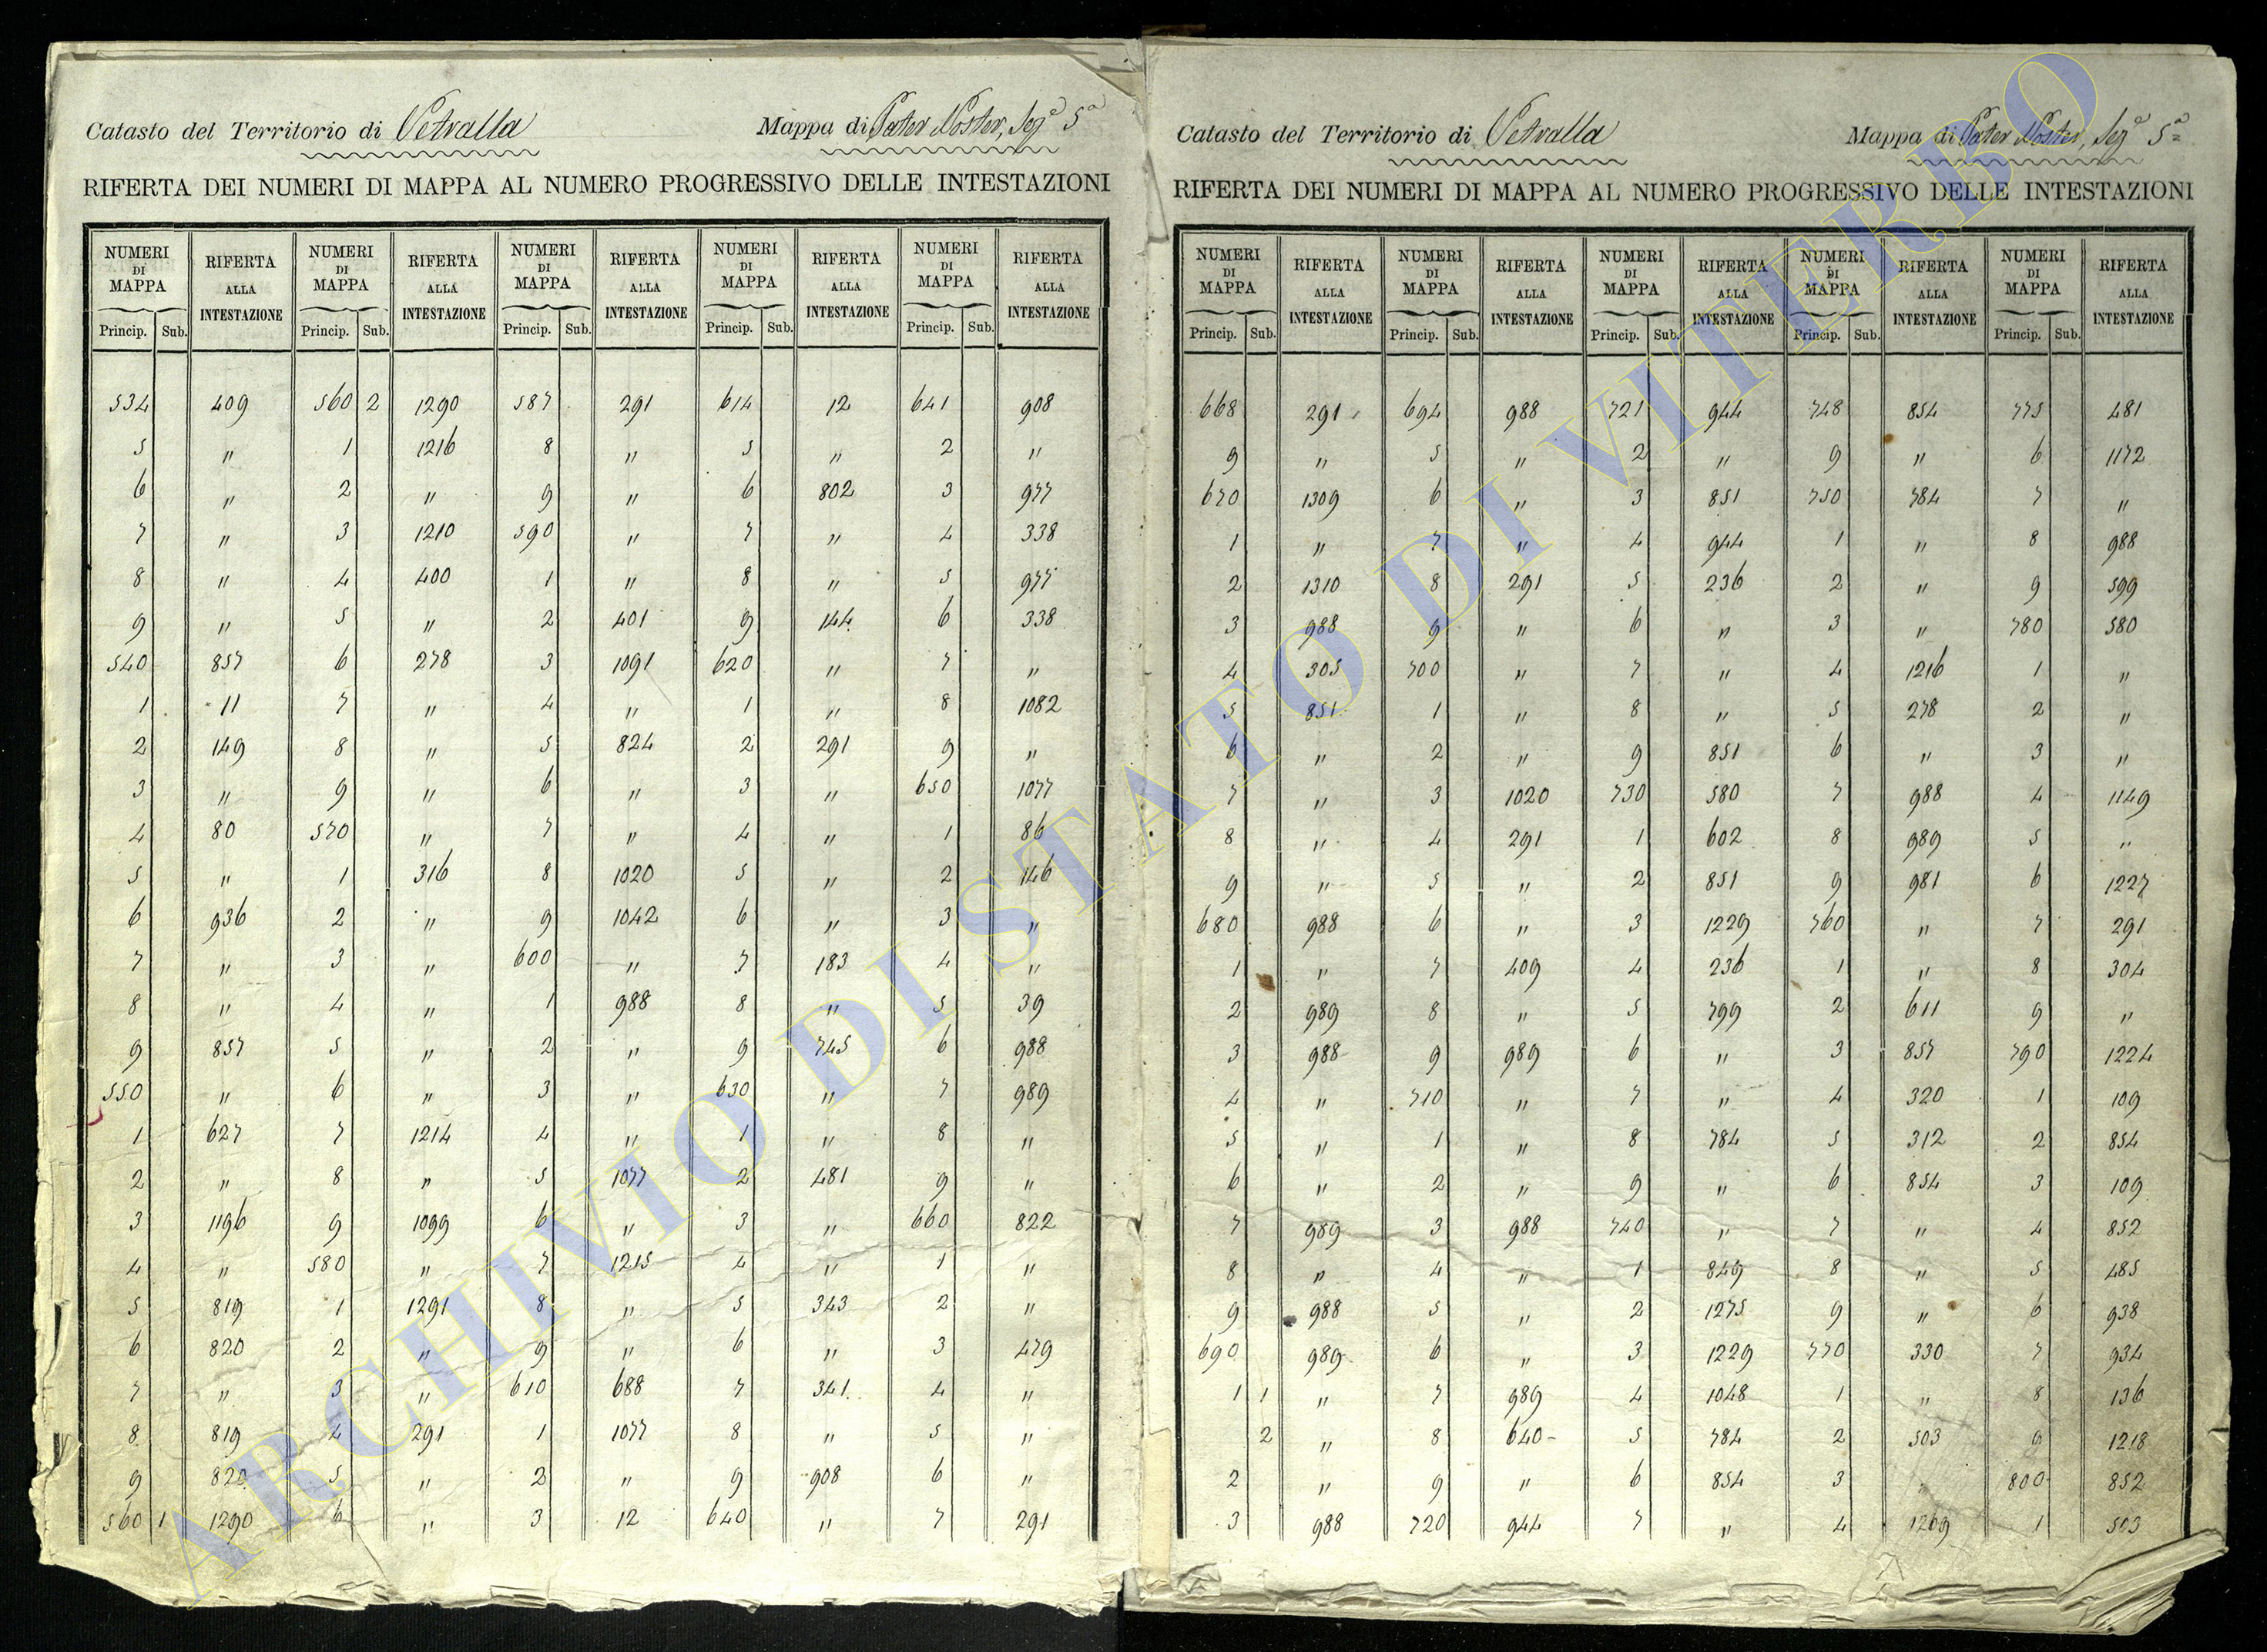 Catasto del Territorio di Vetralla Mappa di Pater Noster, Sez.e 5a
RIFERTA DEI NUMERI DI MAPPA AL NUMERO PROGRESSIVO DELLE INTESTAZIONI
NUMERI DI MAPPA RIFERTA ALLA INTESTAZIONE NUMERI DI MAPPA RIFERTA ALLA INTESTAZIONE NUMERI DI MAPPA RIFERTA ALLA INTESTAZIONE NUMERI DI MAPPA RIFERTA ALLA INTESTAZIONE NUMERI DI MAPPA RIFERTA ALLA INTESTAZIONE
Princip. Sub. Princip. Sub. Princip. Sub. Princip. Sub. Princip. Sub.
534 409 560 2 1290 587 291 614 12 641 908
5 " 1 1216 8 " 5 " 2 "
6 " 2 " 9 " 6 802 3 977
7 " 3 1210 590 " 7 " 4 338
8 " 4 400 1 " 8 " 5 977
9 " 5 " 2 401 9 144 6 338
540 857 6 278 3 1091 620 " 7 "
1 11 7 " 4 " 1 " 8 1082
2 149 8 " 5 824 2 291 9 "
3 " 9 " 6 " 3 " 650 1077
4 80 570 " 7 " 4 " 1 86
5 " 1 316 8 1020 5 " 2 146
6 936 2 " 9 1042 6 " 3 "
7 " 3 " 600 " 7 183 4 "
8 " 4 " 1 988 8 " 5 39
9 857 5 " 2 " 9 745 6 988
550 " 6 " 3 " 630 " 7 989
1 627 7 1214 4 " 1 " 8 "
2 " 8 " 5 1077 2 481 9 "
3 1196 9 1099 6 " 3 " 660 822
4 " 580 " 7 1215 4 " 1 "
5 819 1 1291 8 " 5 343 2 "
6 820 2 " 9 " 6 " 3 479
7 " 3 " 610 688 7 341 4 "
8 819 4 291 1 1077 8 " 5 "
9 820 5 " 2 " 9 908 6 "
560 1 1290 6 " 3 12 640 " 7 291
Catasto del Territorio di Vetralla Mappa di Pater Noster, Sez.e 5a
RIFERTA DEI NUMERI DI MAPPA AL NUMERO PROGRESSIVO DELLE INTESTAZIONI
NUMERI DI MAPPA RIFERTA ALLA INTESTAZIONE NUMERI DI MAPPA RIFERTA ALLA INTESTAZIONE NUMERI DI MAPPA RIFERTA ALLA INTESTAZIONE NUMERI DI MAPPA RIFERTA ALLA INTESTAZIONE NUMERI DI MAPPA RIFERTA ALLA INTESTAZIONE
Princip. Sub. Princip. Sub. Princip. Sub. Princip. Sub. Princip. Sub.
668 291 694 988 721 944 748 854 775 481
9 " 5 " 2 " 9 " 6 1172
670 1309 6 " 3 851 750 784 7 "
1 " 7 " 4 944 1 " 8 988
2 1310 8 291 5 236 2 " 9 599
3 988 9 " 6 " 3 " 780 580
4 305 700 " 7 " 4 1216 1 "
5 851 1 " 8 " 5 278 2 "
6 " 2 " 9 851 6 " 3 "
7 " 3 1020 730 580 7 988 4 1149
8 " 4 291 1 602 8 989 5 "
9 " 5 " 2 851 9 981 6 1227
680 988 6 " 3 1229 760 " 7 291
1 " 7 409 4 236 1 " 8 304
2 989 8 " 5 799 2 611 9 "
3 988 9 989 6 " 3 857 790 1224
4 " 710 " 7 " 4 320 1 109
5 " 1 " 8 784 5 312 2 854
6 " 2 " 9 " 6 854 3 109
7 989 3 988 740 " 7 " 4 852
8 " 4 " 1 849 8 " 5 485
9 988 5 " 2 1275 9 " 6 938
690 989 6 " 3 1229 770 330 7 934
1 1 " 7 989 4 1048 1 " 8 136
2 " 8 640 5 784 2 503 9 1218
2 " 9 " 6 854 3 " 800 852
3 988 720 944 7 " 4 1209 1 503
ARCHIVIO DI STATO DI VITERBO